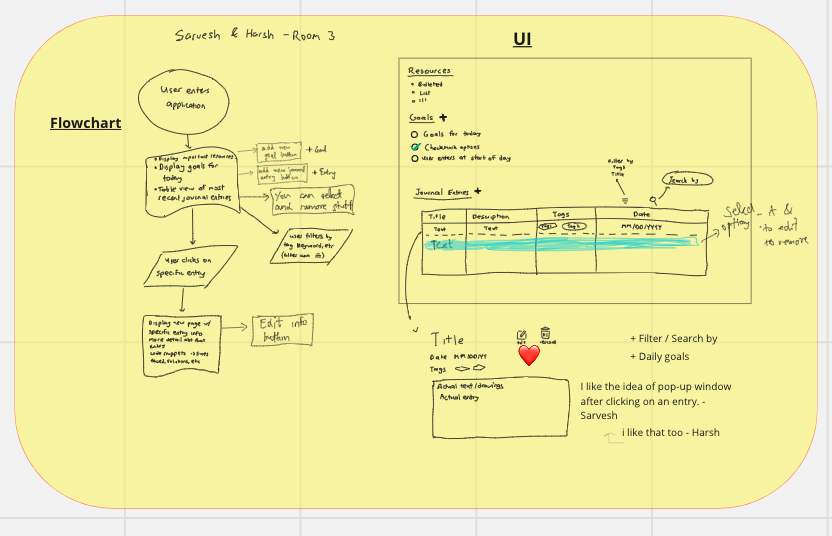 Sarvesh & Harsh - Room 3
Flowchart
User enters
application
• Display important resources
• Display goals for
today
• Table view of most
recent journal entries
add new
goal button
+ Goal
add new journal
entry button
+ Entry
You can select
and remove stuff
user filters by
tag, keyword, etc
(filter icon
User clicks on
specific entry
Display new page w/
specific entry info
more detail abt that
entry
code snippets, issues
faced, solutions, etc
Edit info
button
UI
Resources
• Bulleted
• List
Goals +
Goals for today
Checkmark options
user enters at start of day
Journal Entries +
Filter by
Tags
Title
Search by
Title Description Tags Date
Text Text Tag1 Tag2 MM/DD/YYYY
Text
Select it &
option to edit
to remove
Title
edit remove
Date MM/DD/YY
Tags
Actual text/drawings
Actual entry
+ Filter / Search by
+ Daily goals
I like the idea of pop-up window
after clicking on an entry. -
Sarvesh
i like that too - Harsh